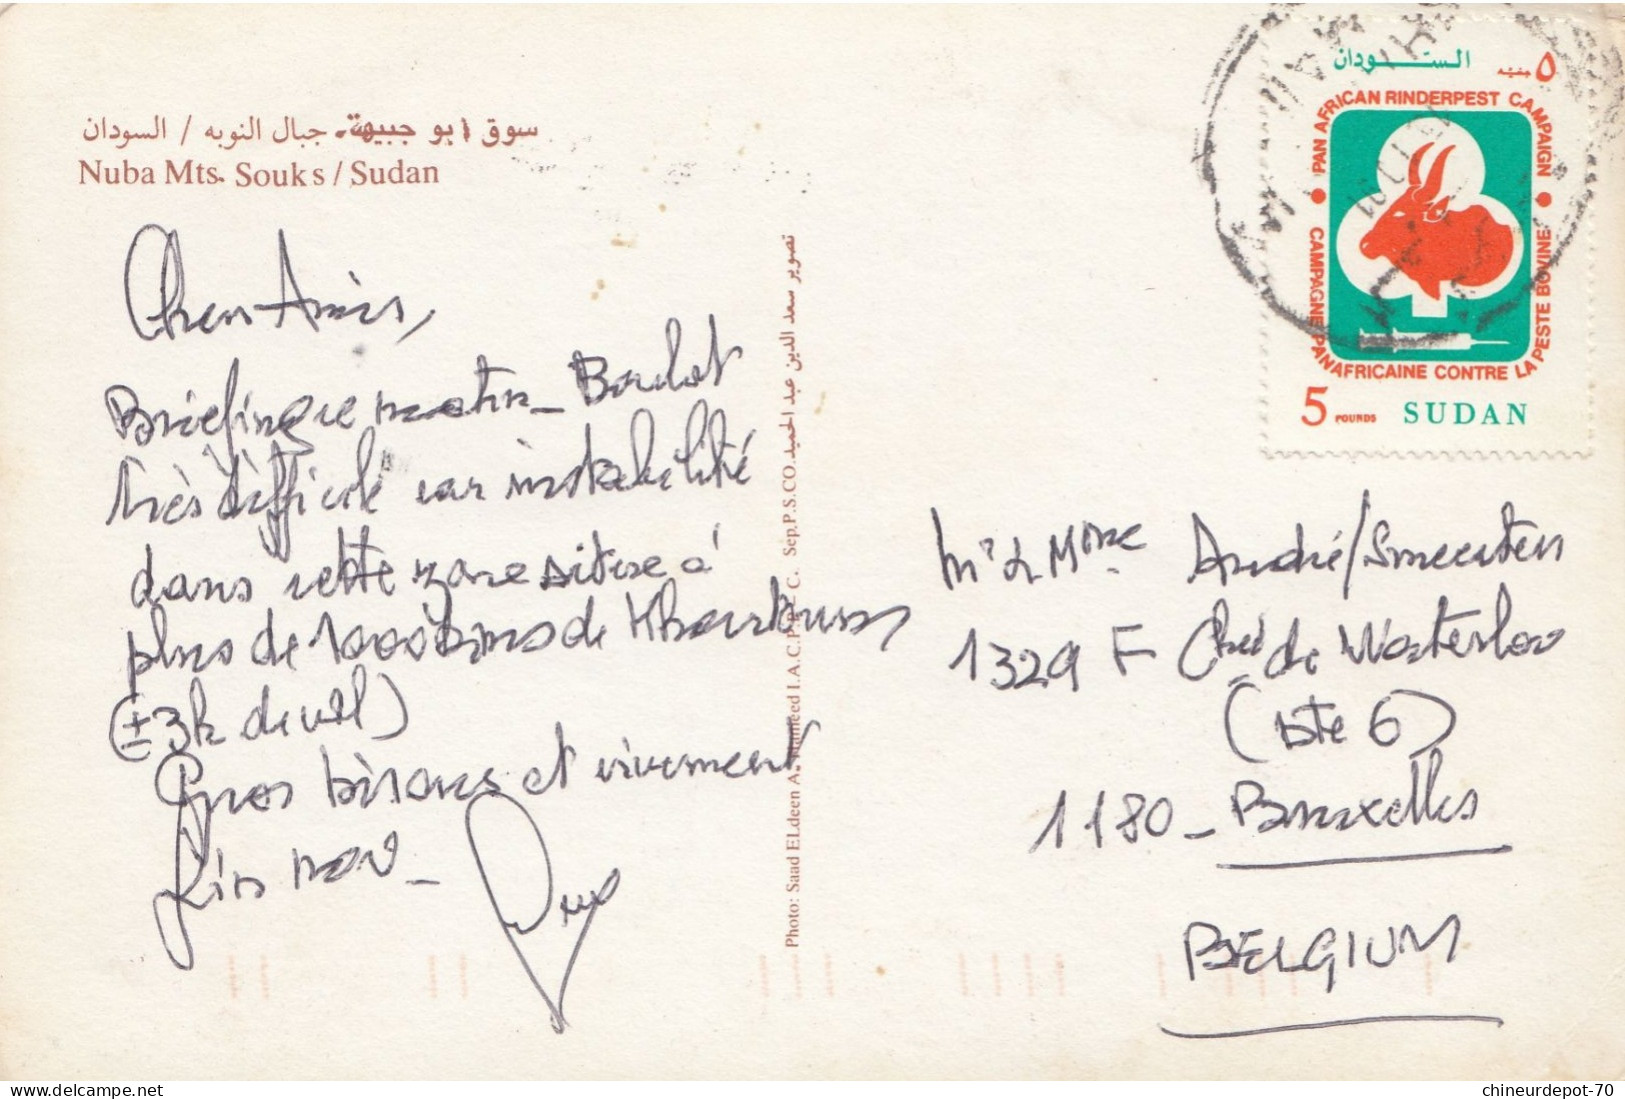 سوق ابو جبيهة، جبال النوبه / السودان
Nuba Mts. Souks / Sudan
Chers Amis,
Briefing ce matin - Boulot
très difficile car instabilité
dans cette zone située à
plus de 1000 kms de Khartoum
(± 3h de vol)
Gros bisous et vivement
fin nov -
تصوير سعد الدين عبد الحميد
Photo: Saad ELdeen A. I.A.C.P. C. Sep.P.S.CO.
السودان
٥ جنيه
PAN AFRICAN RINDERPEST CAMPAIGN
CAMPAGNE PANAFRICAINE CONTRE LA PESTE BOVINE
5 POUNDS SUDAN
Mr & Mme André/Smeesten
1329 F Chée de Waterloo
(Bte 6)
1180 - Bruxelles
BELGIUM
chineurdepot-70